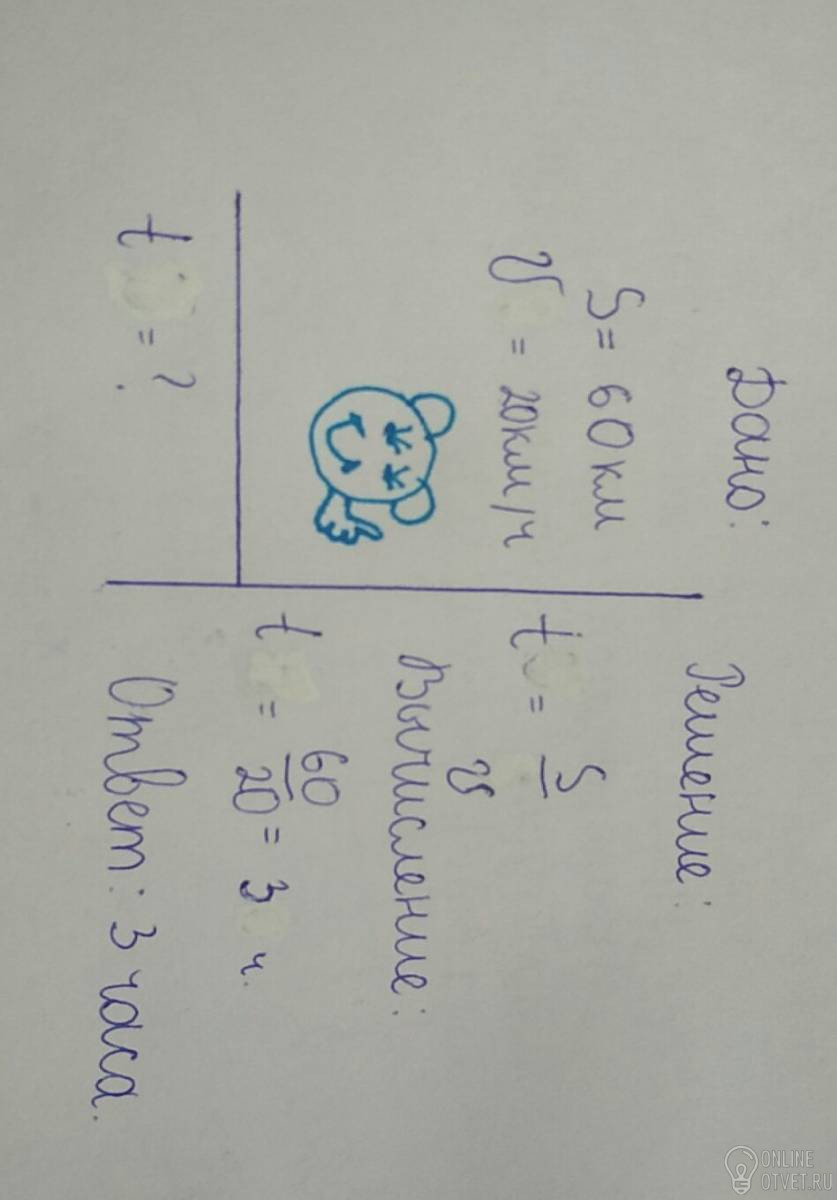 Дано:
S = 60 км
v = 20 км/ч
t = ?
Решение:
t = S/v
Вычисление:
t = 60/20 = 3 ч.
Ответ: 3 часа.
ONLINE
OTVET.RU